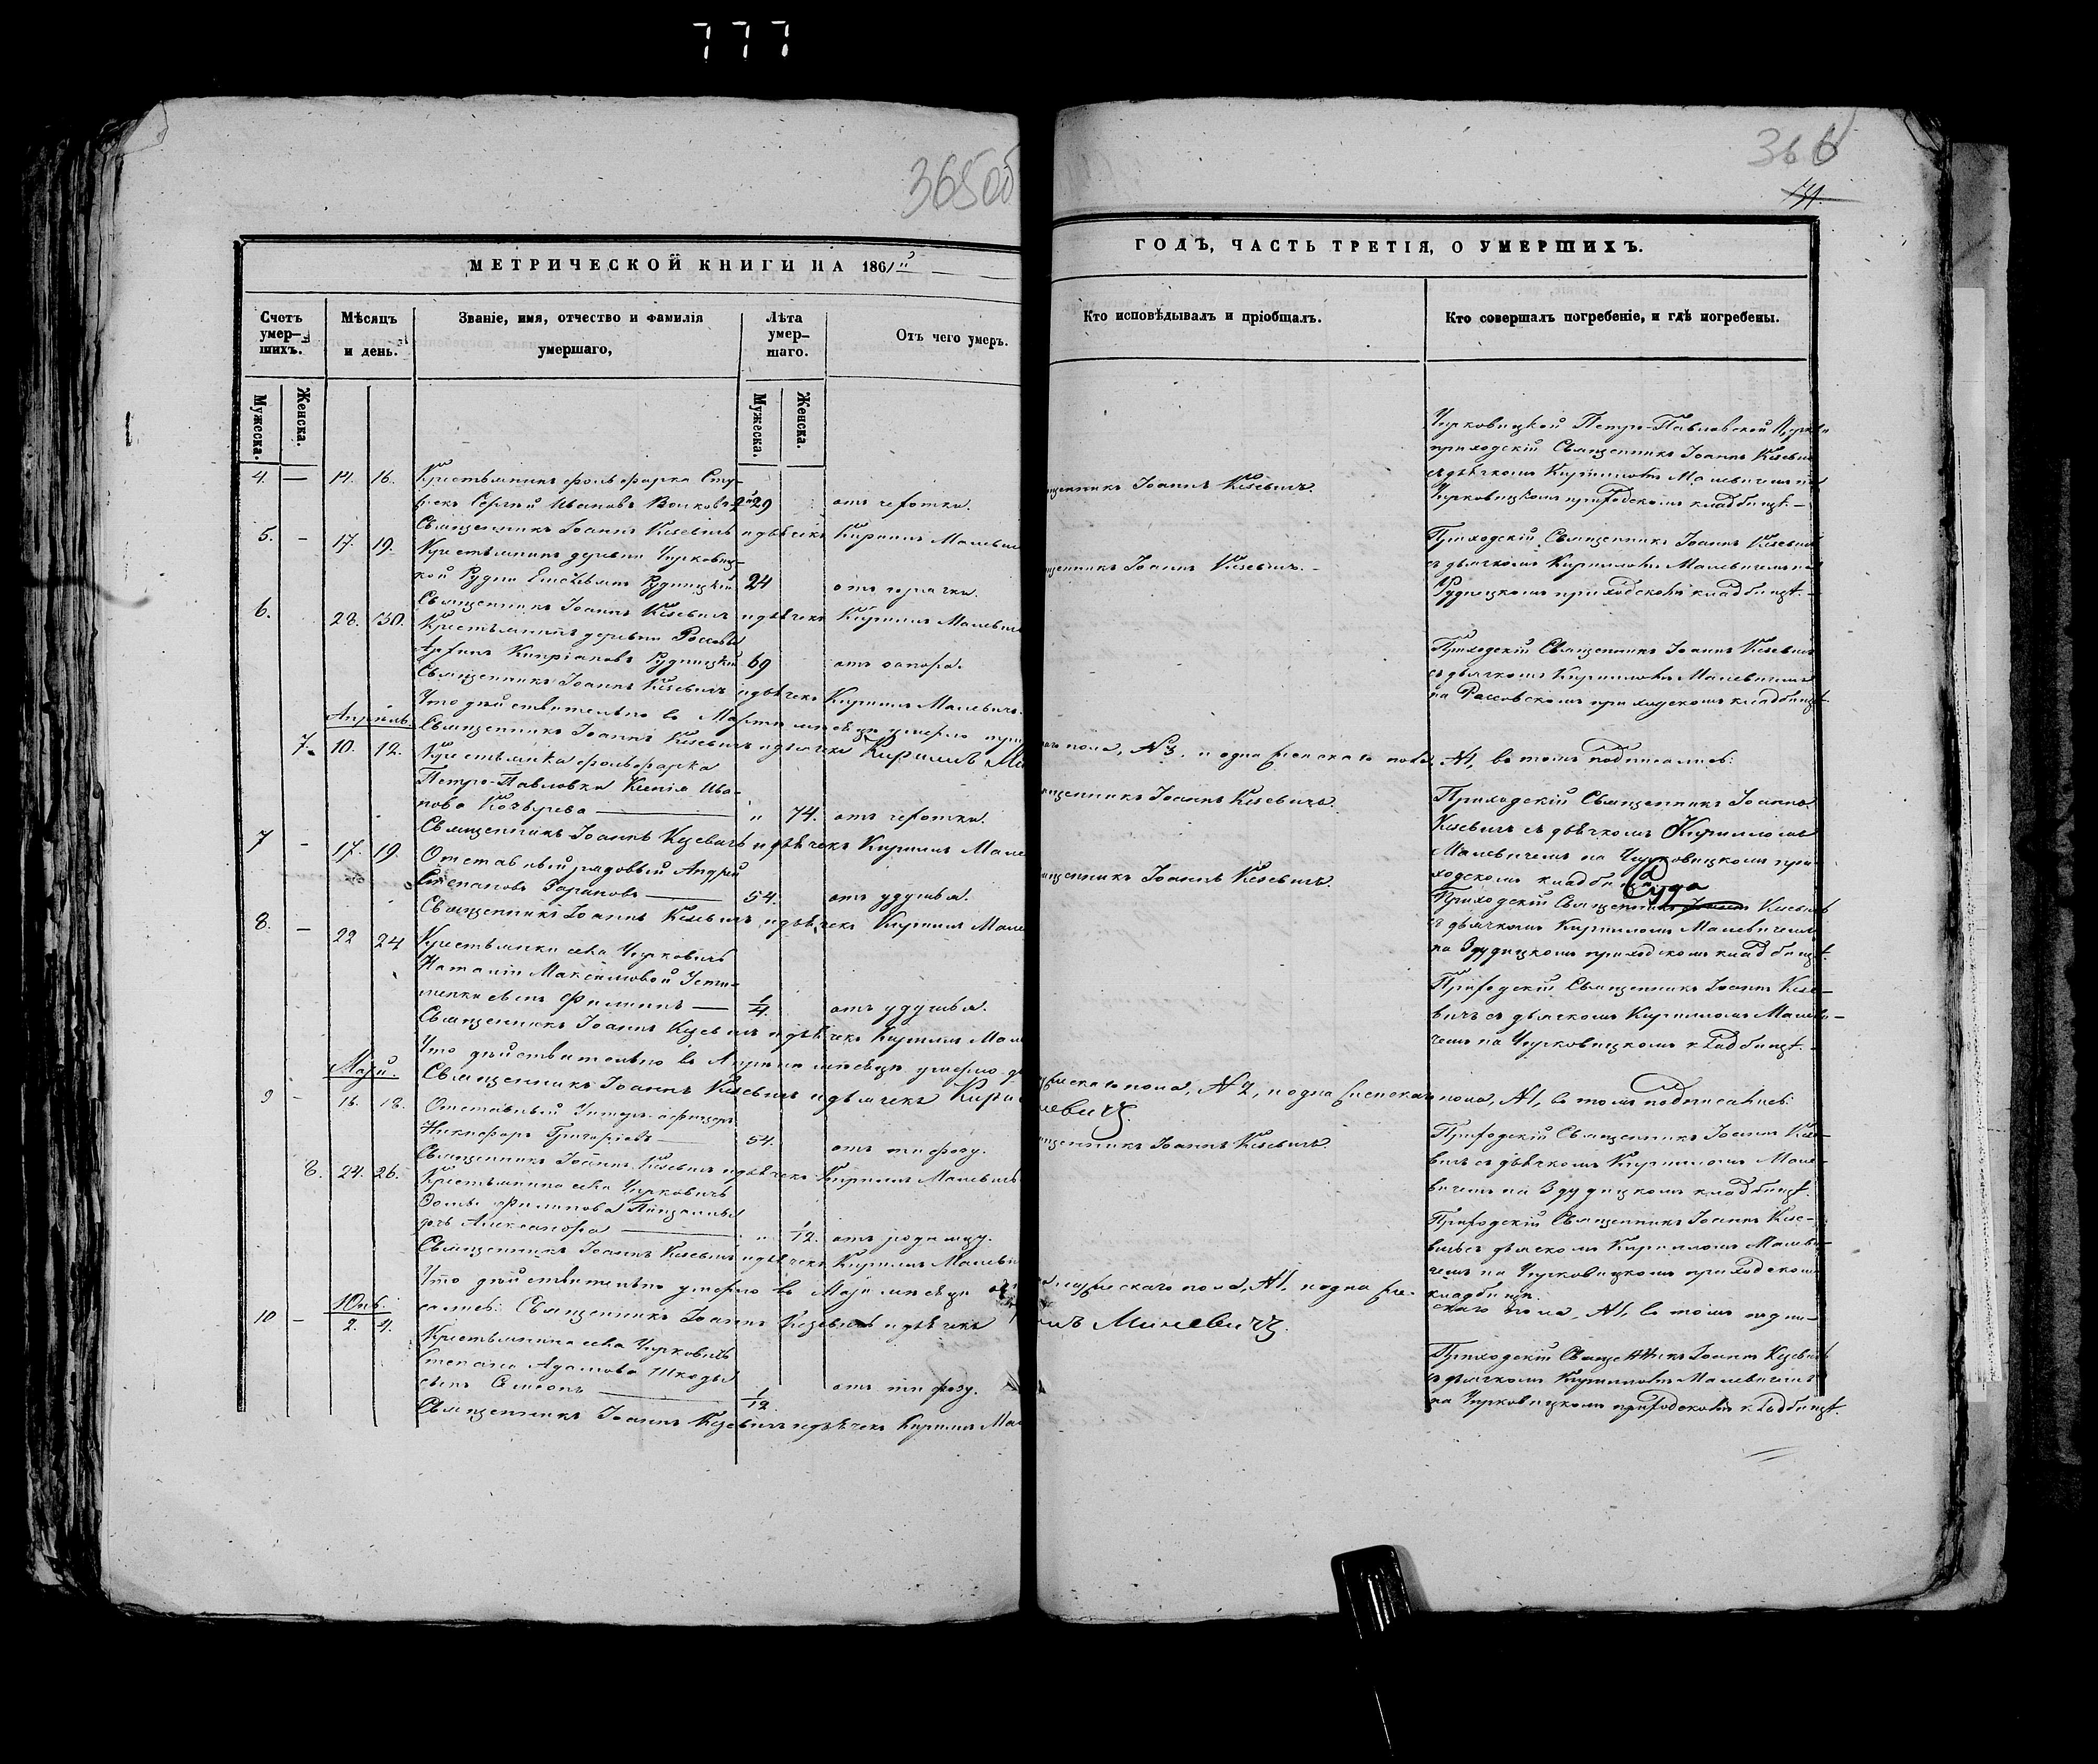 777
365об
366
МЕТРИЧЕСКОЙ КНИГИ НА 1861й
ГОДЪ, ЧАСТЬ ТРЕТІЯ, О УМЕРШИХЪ.
Счетъ умер-шихъ.
Мѣсяцъ и день.
Званіе, имя, отчество и фамилія умершаго,
Лѣта умер-шаго.
Отъ чего умеръ.
Кто исповѣдывалъ и пріобщалъ.
Кто совершалъ погребеніе, и гдѣ погребены.
Мужеска.
Женска.
Мужеска.
Женска.
Чирковицкой Петро-Павловской Церкви
приходскій Священникъ Іоаннъ Кисевич
4. — 14. 16. Крестьянинъ фольфарка
съ дьячкомъ Кирилломъ Малевичемъ на
Сергѣй Ивановъ 29 отъ чахотки.
Священникъ Іоаннъ Кисевичъ.
Чирковицкомъ приходскомъ кладбищѣ. —
Священникъ Іоаннъ Кисевичъ и дьячекъ Кириллъ Малевич
5. — 17. 19. Крестьянинъ деревни Чирковиц-
кой Рудни Емельянъ Рудницкій 24 отъ горячки.
Священникъ Іоаннъ Кисевичъ. —
Приходскій Священникъ Іоаннъ Кисевичъ
съ дьячкомъ Кирилломъ Малевичемъ на
Рудницкомъ приходскомъ кладбищѣ. —
Священникъ Іоаннъ Кисевичъ и дьячекъ Кириллъ Малевич
6. 28. 30. Крестьянинъ деревни Россовы
Кипріановъ Рудницкій 69 отъ запора.
Приходскій Священникъ Іоаннъ Кисевичъ
съ дьячкомъ Кирилломъ Малевичемъ
на Россовскомъ приходскомъ кладбищѣ.
Священникъ Іоаннъ Кисевичъ и дьячекъ Кириллъ Малевичъ.
Что дѣйствительно въ Мартѣ мѣсяцѣ умерло
пола, №3. и одна женскаго пола, №1, въ томъ подписались:
Апрѣль.
Священникъ Іоаннъ Кисевичъ и дьячекъ Кириллъ
7. 10. 12. Крестьянка фольфарка
Петро-Павловка Ксенія Ива-
нова — „ 74. отъ чахотки.
Священникъ Іоаннъ Кисевичъ.
Приходскій Священникъ Іоаннъ
Кисевичъ съ дьячкомъ Кирилломъ
Малевичемъ на Чирковицкомъ при-
ходскомъ кладбищѣ.
Священникъ Іоаннъ Кисевичъ и дьячекъ Кириллъ Мале
7 – 17. 19. Отставный рядовый Андрей
Степановъ — 54. отъ удушья.
Священникъ Іоаннъ Кисевичъ.
Приходскій Священникъ Кисевичъ
съ дьячкомъ Кирилломъ Малевичемъ
на Здудицкомъ приходскомъ кладбищѣ.
Священникъ Іоаннъ Кисевичъ и дьячекъ Кириллъ Мале
8. – 22 24 Крестьянки села Чирковичъ
Наталіи Максимовой
сынъ Филиппъ — 1/4. отъ удушья.
Приходскій Священникъ Іоаннъ Кисе-
вичъ съ дьячкомъ Кирилломъ Малеви-
чемъ на Чирковицкомъ кладбищѣ.
Священникъ Іоаннъ Кисевичъ и дьячекъ Кириллъ Мал
Что дѣйствительно въ Апрѣлѣ мѣсяцѣ умерло
пола, №2, и одна женскаго пола, №1, въ томъ подписались:
Май.
Священникъ Іоаннъ Кисевичъ и дьячекъ
9 – 16. 18. Отставный Унтеръ-офицеръ
Никифоръ Григорьевъ — 54. отъ тифозу.
Священникъ Іоаннъ Кисевичъ.
Приходскій Священникъ Іоаннъ Кисе-
вичъ съ дьячкомъ Кирилломъ Мале-
вичемъ на Здудицкомъ кладбищѣ.
Священникъ Іоаннъ Кисевичъ и дьячекъ Кириллъ Малевичъ
8. 24. 26. Крестьянина села Чирковичъ
Филипова
дочь Александра — „ 1/12. отъ родимцу.
Приходскій Священникъ Іоаннъ Кисе-
вичъ съ дьячкомъ Кирилломъ Малеви-
чемъ на Чирковицкомъ приходскомъ
кладбищѣ.
Священникъ Іоаннъ Кисевичъ и дьячекъ Кириллъ Малевич
Что дѣйствительно умерло въ Маѣ мѣсяцѣ
мужескаго пола, №1, и одна жен-
скаго пола, №1, въ томъ подпи-
сались: Священникъ Іоаннъ Кисевичъ и дьячекъ
Юнь
10 – 2. 4. Крестьянина села Чирковичъ
Степана Адамова Шкоды
сынъ Симеонъ — 1/12. отъ тифозу.
Приходскій Священникъ Іоаннъ Кисевичъ
съ дьячкомъ Кирилломъ Малевичемъ
на Чирковицкомъ приходскомъ кладбищѣ.
Священникъ Іоаннъ Кисевичъ и дьячекъ Кириллъ Мал